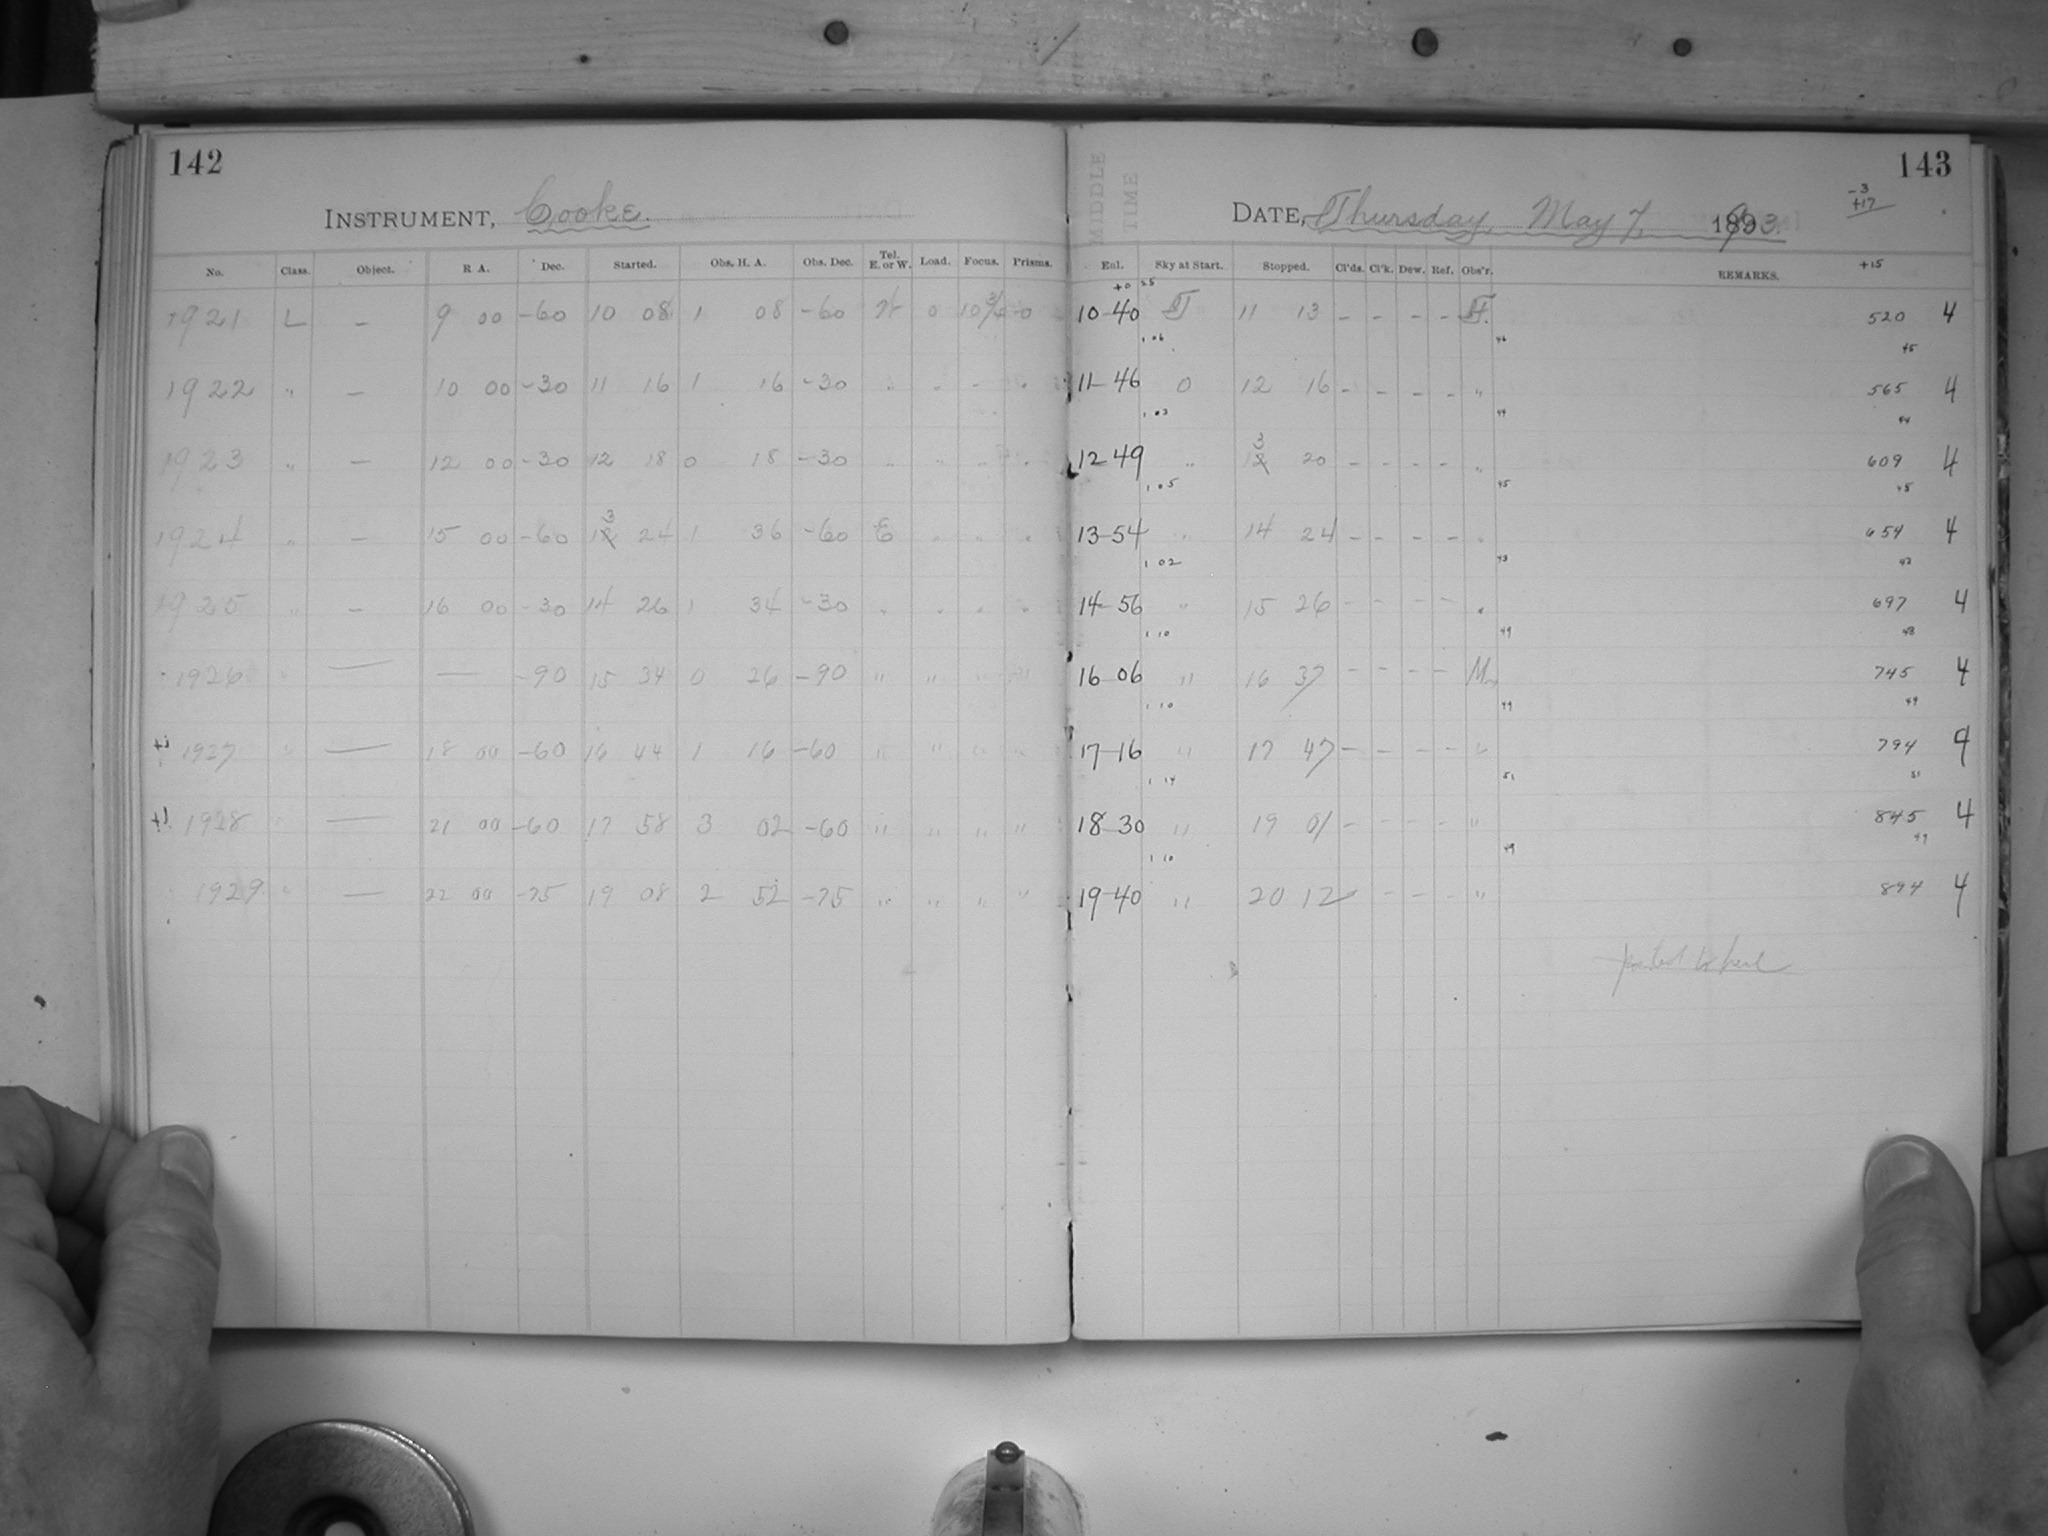 142
INSTRUMENT, Cooke.
No. Class. Object. R A. Dec. Started. Obs. H. A. Obs. Dec. Tel. E. or W. Load. Focus. Prisms.
1921 L — 9 00 -60 10 08 1 08 -60 W 0 10 3/4 0
1922 " — 10 00 -30 11 16 1 16 -30 " " " "
1923 " — 12 00 -30 12 18 0 18 -30 " " " "
1924 " — 15 00 -60 13 24 1 36 -60 E " " "
1925 " — 16 00 -30 14 26 1 34 -30 " " " "
1926 " — — -90 15 34 0 26 -90 " " " "
1927 " — 18 00 -60 16 44 1 16 -60 " " " "
+1 1928 " — 21 00 -60 17 58 3 02 -60 " " " "
1929 " — 22 00 -75 19 08 2 52 -75 " " " "
143
MIDDLE TIME
-3
+17
DATE, Thursday, May 7, 1893.
Enl. Sky at Start. Stopped. Cl'ds. Cl'k. Dew. Ref. Obs'r. REMARKS. +15
10-40 11 13 - - - - 520 4
1 06 46 45
11-46 0 12 16 - - - - " 565 4
1 03 44 44
12-49 " 13 20 - - - - " 609 4
1 05 45 45
13-54 " 14 24 - - - - " 654 4
1 02 43 43
14-56 " 15 26 - - - - " 697 4
1 10 49 48
16-06 " 16 37 - - - - M 745 4
1 10 49 49
17-16 " 17 47 - - - - " 794 4
1 14 51 51
18-30 " 19 01 - - - - " 845 4
1 10 49 49
19-40 " 20 12 - - - - " 894 4